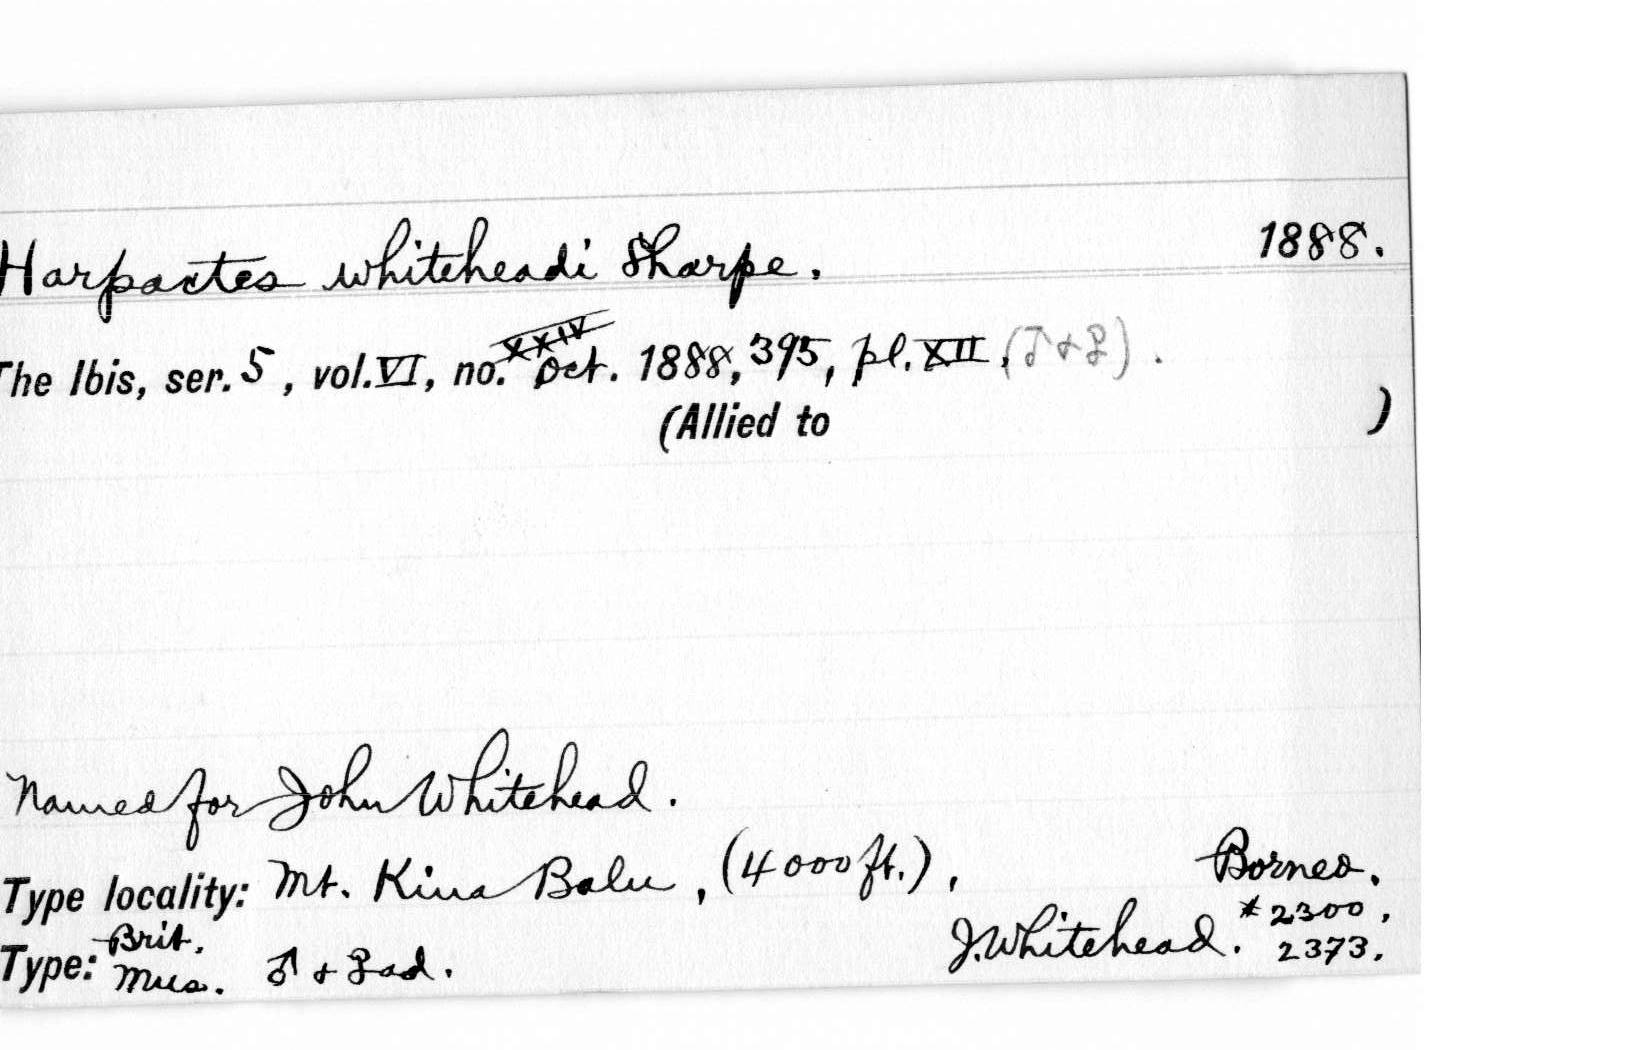 Harpactes whiteheadi Sharpe. 1888.
The Ibis, ser. 5, vol. VI, no. XXIV Oct. 1888, 395, pl. XII, (♂ + ♀).
(Allied to )
Named for John Whitehead.
Type locality: Mt. Kina Balu, (4000 ft.), Borneo.
Type: Brit. Mus. ♂ + ♀ ad. J. Whitehead. #2300, 2373.